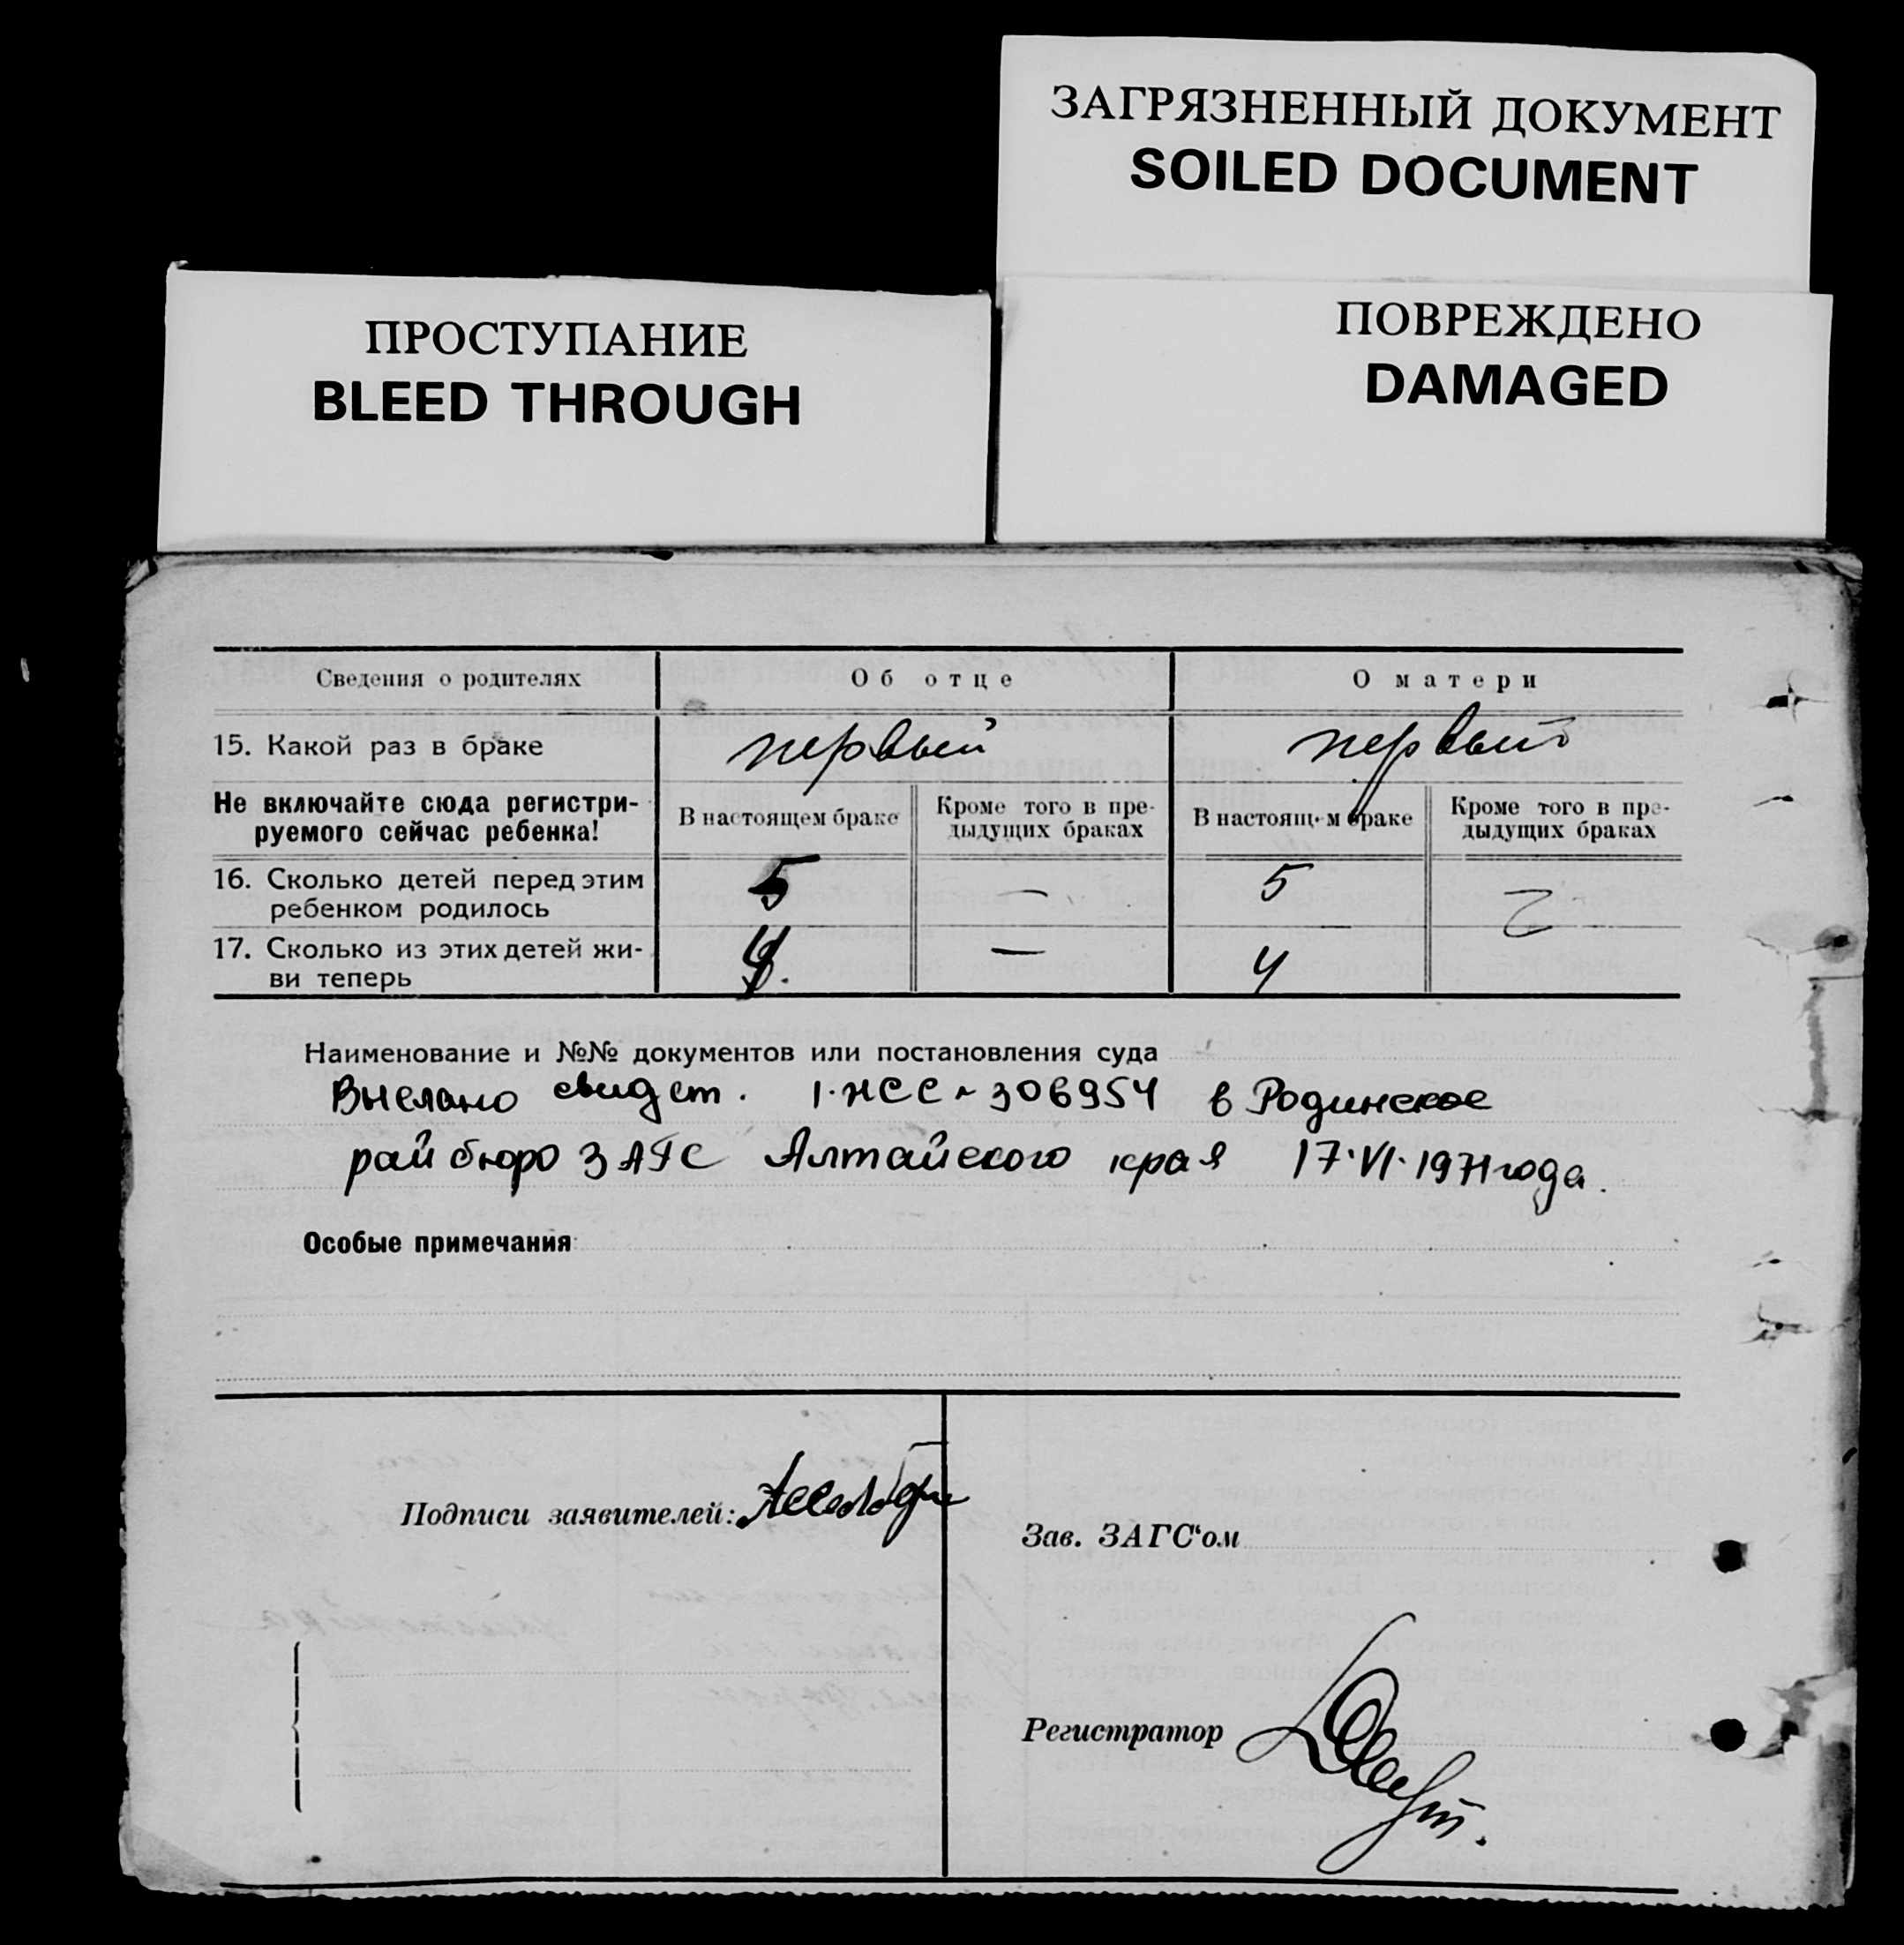 ЗАГРЯЗНЕННЫЙ ДОКУМЕНТ
SOILED DOCUMENT
ПРОСТУПАНИЕ
BLEED THROUGH
ПОВРЕЖДЕНО
DAMAGED
Сведения о родителях Об отце О матери
15. Какой раз в браке первый первый
Не включайте сюда регистри-
руемого сейчас ребенка!
В настоящем браке
Кроме того в пре-
дыдущих браках
В настоящем браке
Кроме того в пре-
дыдущих браках
16. Сколько детей перед этим
ребенком родилось
5 — 5 —
17. Сколько из этих детей жи-
ви теперь
4. — 4
Наименование и №№ документов или постановления суда
Выслано свидет. 1-ЖСС~306954 в Родинское
райбюро ЗАГС Алтайского края 17·VI·1971 года.
Особые примечания:
Подписи заявителей:
Зав. ЗАГС'ом
Регистратор